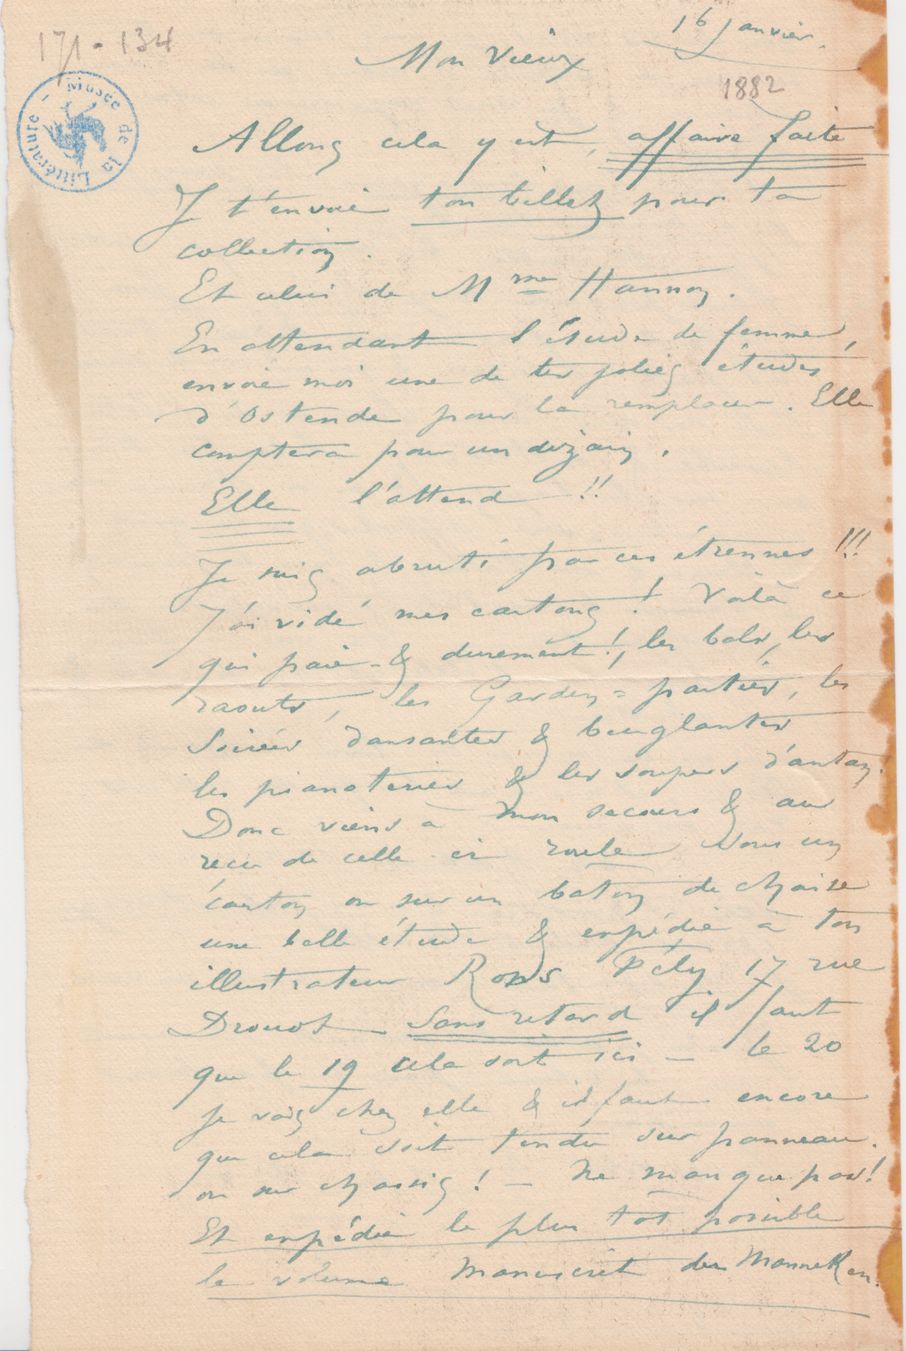 171-134
16 Janvier.
Musée de la Littérature -
Mon Vieux
1882
Allons cela y est, affaire faite
Je t'envoie ton billet pour ta
collection.
Et celui de Mme Hannon.
En attendant l'étude de femme,
envoie moi une de tes jolies études
d'Ostende pour la remplacer. Elle
comptera pour un dizain.
Elle l'attend !!
Je suis abruti par ces étrennes !!!
J'ai vidé mes cartons ! Voilà ce
qui paie & durement !, les bals, les
raouts, les Garden=parties, les
Soirées dansantes & beuglantes
les pianoteries & les soupers d'antan.
Donc viens à mon secours & au
reçu de celle ci roule sous un
carton ou sur un bâton de chaise
une belle étude & expédie à ton
illustrateur Rops Fély 17 rue
Drouot - Sans retard il faut
que le 19 cela soit ici - le 20
Je vais chez elle & il faut encore
que cela soit tendu sur panneau.
ou sur chassis ! - Ne manque pas !
Et expédie le plus tôt possible
le volume manuscrit du Manneken.